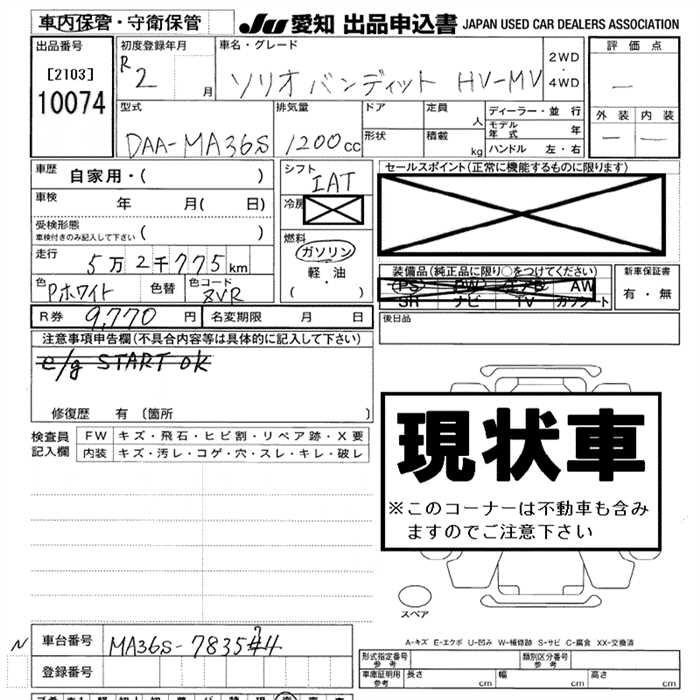 車内保管・守衛保管 JU 愛知 出品申込書 JAPAN USED CAR DEALERS ASSOCIATION
出品番号 初度登録年月 車名・グレード 2WD 評価点
[2103] R2 月 ソリオバンディット HV-MV ・ 4WD —
10074 型式 排気量 ドア 定員 人 ディーラー・並行 外装 内装
DAA-MA36S 1200cc 形状 積載 kg モデル年式 年 — —
ハンドル 左・右
車歴 自家用・( ) シフト IAT セールスポイント(正常に機能するものに限ります)
車検 年 月( 日) 冷房
受検形態 車検付きのみ記入して下さい ( ) 燃料
走行 5万2千775km ガソリン 装備品(純正品に限り○をつけてください) 新車保証書
色 Pホワイト 色替 色コード ZVR 軽・油 (PS) PW エアB AW 有・無
( ・ ) SR ナビ TV カワシート
R券 9,770円 名変期限 月 日 後日品
注意事項申告欄(不具合内容等は具体的に記入して下さい)
e/g START OK
修復歴 有〔箇所 〕
検査員 FW キズ・飛石・ヒビ割・リペア跡・X要
記入欄 内装 キズ・汚レ・コゲ・穴・スレ・キレ・破レ
現状車
※このコーナーは不動車も含み
ますのでご注意下さい
スペア
A-キズ E-エクボ U-凹み W-補修跡 S-サビ C-腐食 XX-交換済
N 車台番号 MA36S-7835
登録番号
形式指定番号 参考 類別区分番号 参考
車庫証明用 参考 長さ cm 幅 cm 高さ cm